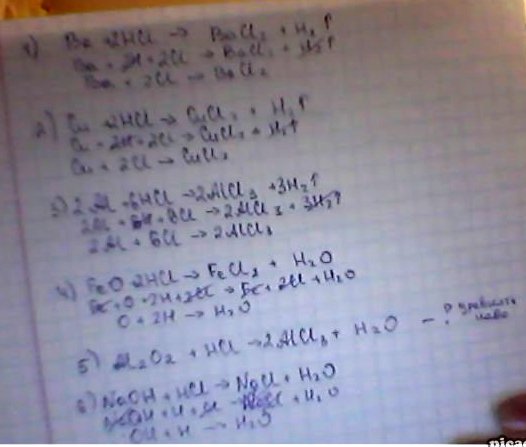 1) Ba + 2HCl → BaCl₂ + H₂↑
Ba + 2H + 2Cl → BaCl₂ + H₂↑
Ba + 2Cl → BaCl₂
2) Cu + 2HCl → CuCl₂ + H₂↑
Cu + 2H + 2Cl → CuCl₂ + H₂↑
Cu + 2Cl → CuCl₂
3) 2Al + 6HCl → 2AlCl₃ + 3H₂↑
2Al + 6H + 6Cl → 2AlCl₃ + 3H₂↑
2Al + 6Cl → 2AlCl₃
4) FeO + 2HCl → FeCl₂ + H₂O
Fe + O + 2H + 2Cl → Fe + 2Cl + H₂O
O + 2H → H₂O
5) Al₂O₂ + HCl → 2AlCl₃ + H₂O — ?
6) NaOH + HCl → NaCl + H₂O
NaOH + H + Cl → NaCl + H₂O
OH + H → H₂O
picac